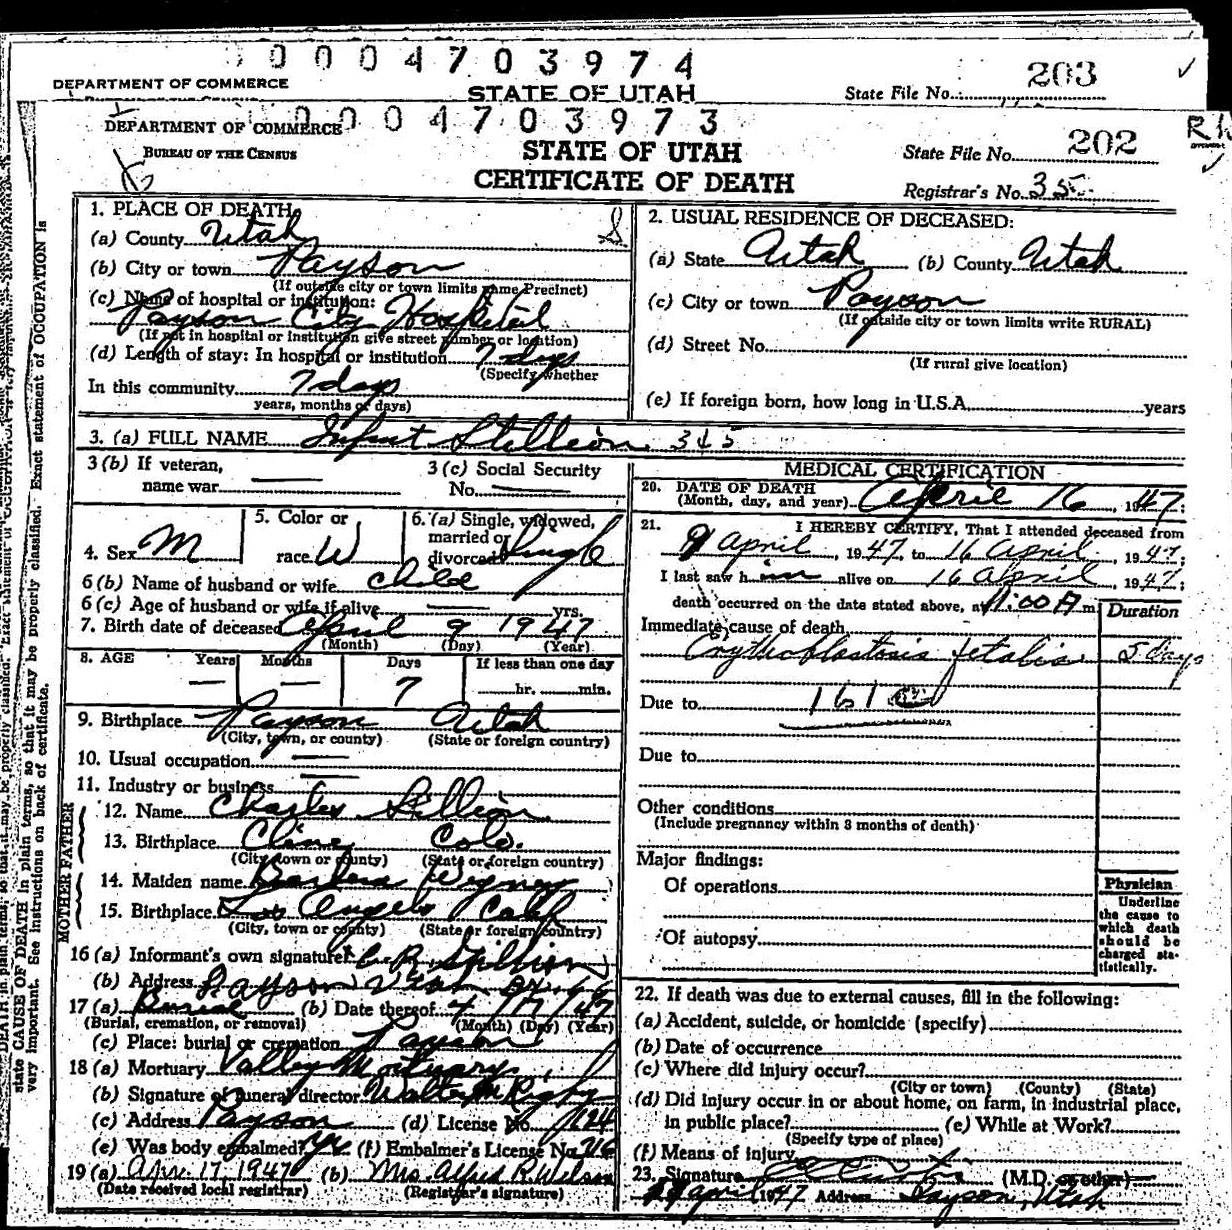 0004703974
DEPARTMENT OF COMMERCE
STATE OF UTAH
State File No. 203
0004703973
DEPARTMENT OF COMMERCE
BUREAU OF THE CENSUS
STATE OF UTAH
CERTIFICATE OF DEATH
State File No. 202
Registrar's No. 35
1. PLACE OF DEATH
(a) County Utah
(b) City or town Payson
(If outside city or town limits name Precinct)
(c) Name of hospital or institution:
Payson City Hospital
(If not in hospital or institution give street number or location)
(d) Length of stay: In hospital or institution 7 days
(Specify whether
In this community 7 days
years, months or days)
2. USUAL RESIDENCE OF DECEASED:
(a) State Utah (b) County Utah
(c) City or town Payson
(If outside city or town limits write RURAL)
(d) Street No.
(If rural give location)
(e) If foreign born, how long in U.S.A. years
3. (a) FULL NAME Infant Stillion 345
3 (b) If veteran,
name war
3 (c) Social Security
No.
4. Sex M
5. Color or
race W
6. (a) Single, widowed,
married or
divorced Single
6 (b) Name of husband or wife child
6 (c) Age of husband or wife if alive yrs.
7. Birth date of deceased April 9 1947
(Month) (Day) (Year)
8. AGE Years Months Days If less than one day
7 hr. min.
9. Birthplace Payson Utah
(City, town, or county) (State or foreign country)
10. Usual occupation
11. Industry or business
FATHER
12. Name Charles Stillion
13. Birthplace Cline Colo.
(City, town or county) (State or foreign country)
MOTHER
14. Maiden name Barbara
15. Birthplace Los Angeles Calif
(City, town or county) (State or foreign country)
16 (a) Informant's own signature C. R. Stillion
(b) Address Payson Utah
17 (a) Burial (b) Date thereof 4/17/47
(Burial, cremation, or removal) (Month) (Day) (Year)
(c) Place: burial or cremation Payson
18 (a) Mortuary Valley Mortuary
(b) Signature of funeral director Walter M Rigby
(c) Address Payson (d) License No. 124
(e) Was body embalmed? yes (f) Embalmer's License No. 216
19 (a) Apr. 17, 1947 (b) Mrs. Alfred R. Wilson
(Date received local registrar) (Registrar's signature)
MEDICAL CERTIFICATION
20. DATE OF DEATH
(Month, day, and year) April 16, 1947;
21. I HEREBY CERTIFY, That I attended deceased from
9 April, 1947, to 16 April, 1947;
I last saw him alive on 16 April, 1947;
death occurred on the date stated above, at 11:00 A m.
Duration
Immediate cause of death
Erythroblastosis fetalis 5 days
Due to 161
Due to
Other conditions
(Include pregnancy within 3 months of death)
Major findings:
Of operations
Of autopsy
Physician
Underline
the cause to
which death
should be
charged sta-
tistically.
22. If death was due to external causes, fill in the following:
(a) Accident, suicide, or homicide (specify)
(b) Date of occurrence
(c) Where did injury occur?
(City or town) (County) (State)
(d) Did injury occur in or about home, on farm, in industrial place,
in public place? (e) While at Work?
(Specify type of place)
(f) Means of injury
23. Signature (M.D. or other)
April 1947 Address Payson, Utah
state CAUSE OF DEATH in plain terms, so that it may be properly classified. Exact statement of OCCUPATION is
very important. See instructions on back of certificate.